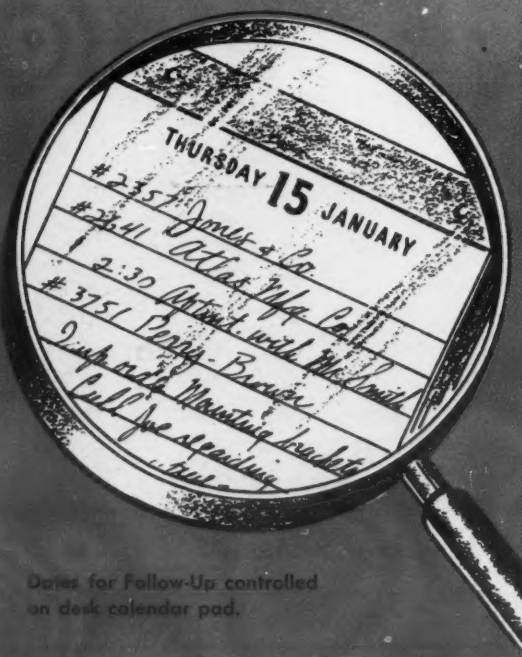 THURSDAY 15 JANUARY
#2357 Jones & Co
#2641 Atlas Mfg Co
2:30 with Mr. Smith
#3751 Perry-Brown
Mounting brackets
Call Joe regarding
Dates for Follow-Up controlled
on desk calendar pad.